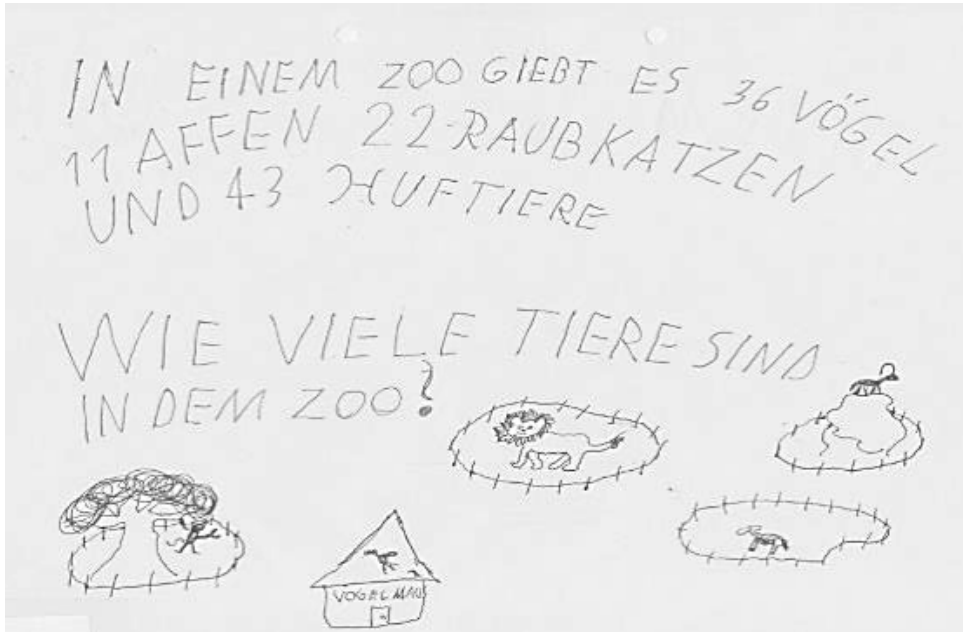 IN EINEM ZOO GIEBT ES 36 VÖGEL
11 AFFEN 22 RAUBKATZEN
UND 43 HUFTIERE
WIE VIELE TIERE SIND
IN DEM ZOO?